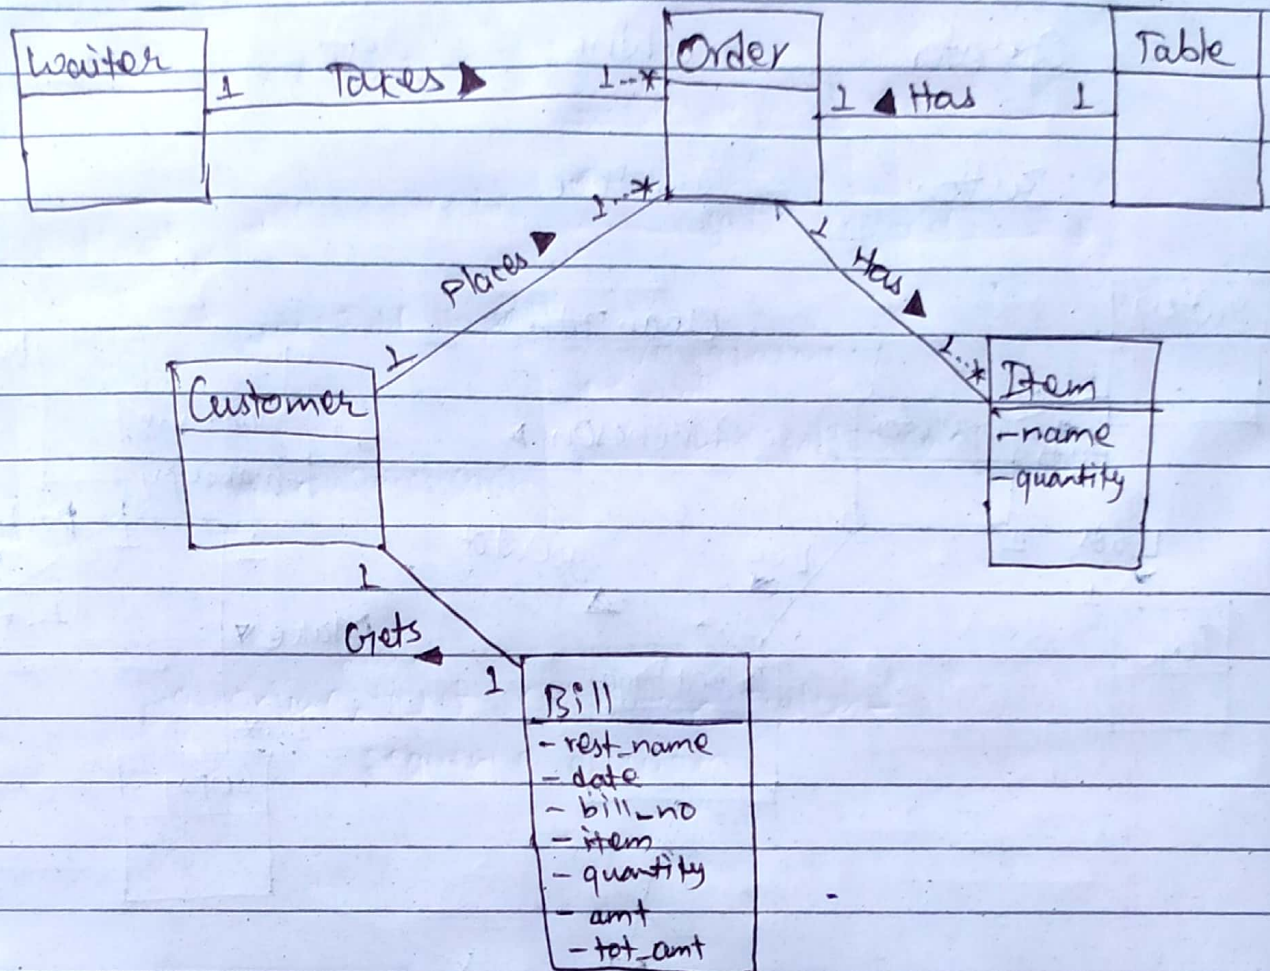 Waiter
1 Takes ▶ 1..*
Order
1 ◀ Has 1
Table
1...*
Places ▶
1
1
Has ▶
1..*
Customer
Item
-name
-quantity
1
Gets ◀
1
Bill
- rest_name
- date
- bill_no
- item
- quantity
- amt
- tot_amt